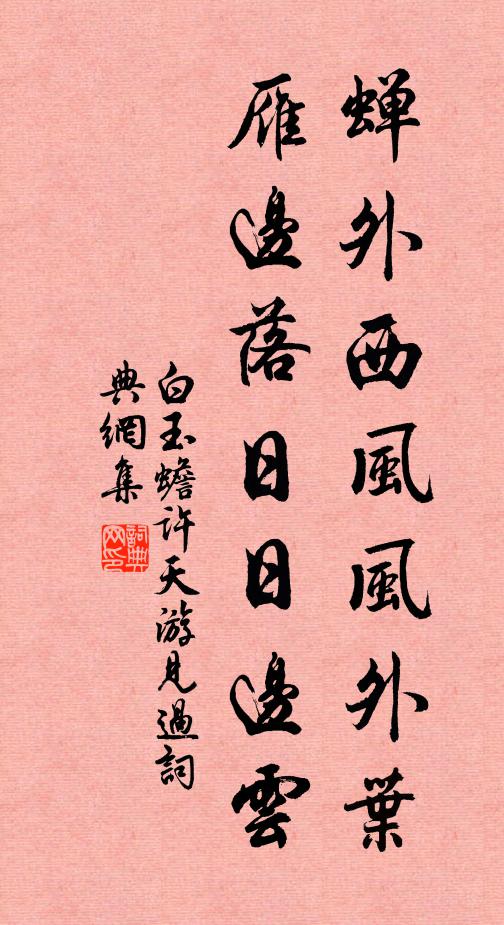 蝉外西風風外葉
雁邊落日日邊雲
白玉蟾許天游見過詞
典網集
詞典网印